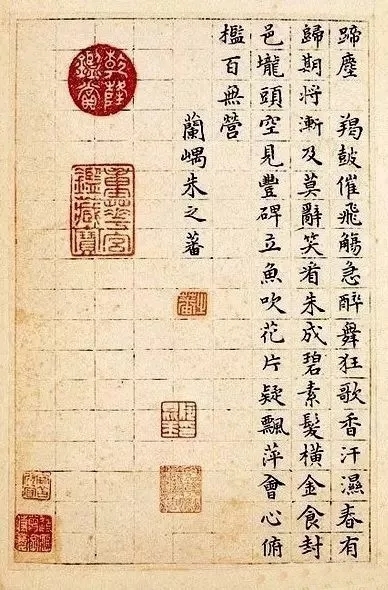 蹄塵　羯鼓催飛觴急醉舞狂歌香汗濕春有
歸期将漸及莫辭笑看朱成碧素髮橫金食封
邑壠頭空見豐碑立魚吹花片疑飄萍會心俯
檻百無營
蘭嵎朱之蕃
乾隆鑑賞
重華宮鑑藏寶
之蕃